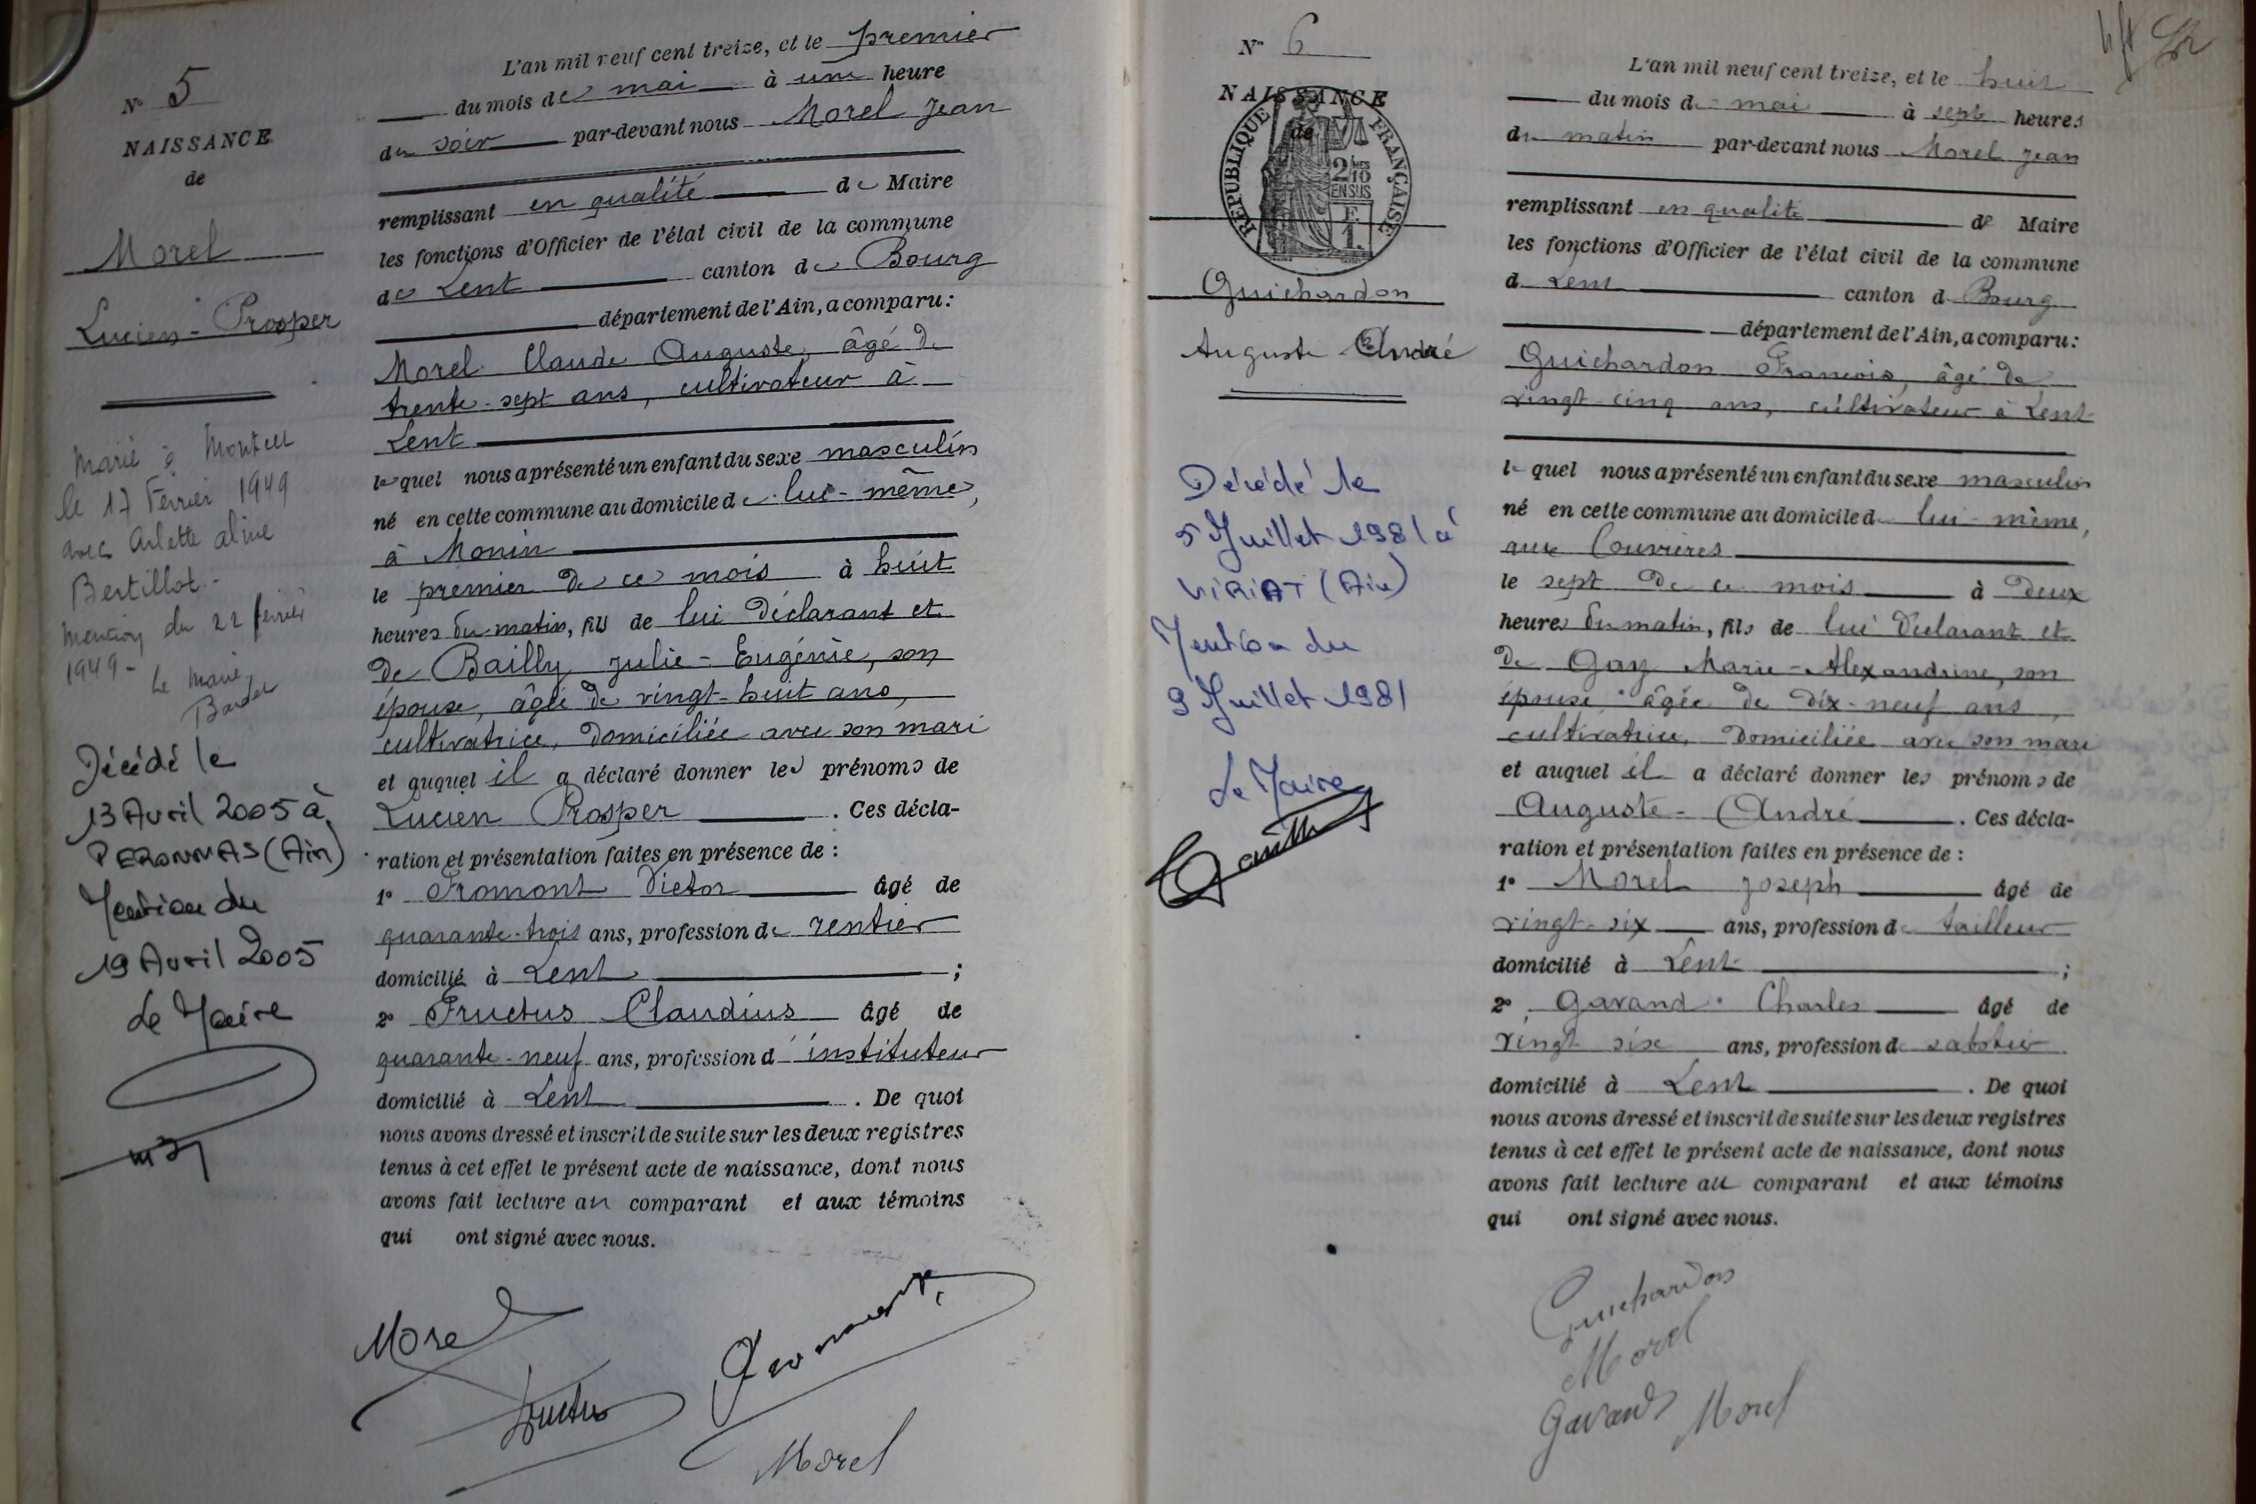 N° 5
NAISSANCE
de
Morel
Lucien-Prosper
Marié à
le 17 Février 1949
avec Arlette aline
Bertillot-
mention du 22 février
1949- Le Maire,
Décédé le
13 Avril 2005 à
PERONNAS (Ain)
Mention du
19 Avril 2005
Le Maire
L'an mil neuf cent treize, et le premier
du mois de mai à une heure
du soir par-devant nous Morel Jean
remplissant en qualité de Maire
les fonctions d'Officier de l'état civil de la commune
de Lent canton de Bourg
département de l'Ain, a comparu:
Morel Claude Auguste, âgé de
trente-sept ans, cultivateur à
Lent
lequel nous a présenté un enfant du sexe masculin
né en cette commune au domicile de lui-même,
à Monin
le premier de ce mois à huit
heures du matin, fils de lui déclarant et
de Bailly Julie-Eugénie, son
épouse, âgée de vingt-huit ans,
cultivatrice, domiciliée avec son mari
et auquel il a déclaré donner les prénoms de
Lucien Prosper . Ces décla-
ration et présentation faites en présence de :
1° Fromont Victor âgé de
quarante-trois ans, profession de rentier
domicilié à Lent ;
2° Fructus Claudius âgé de
quarante-neuf ans, profession d'instituteur
domicilié à Lent . De quoi
nous avons dressé et inscrit de suite sur les deux registres
tenus à cet effet le présent acte de naissance, dont nous
avons fait lecture au comparant et aux témoins
qui ont signé avec nous.
Morel
Fromont
Fructus
Morel
N° 6
NAISSANCE
de
RÉPUBLIQUE FRANÇAISE
2/10
EN SUS
F.
1.
Guichardon
Auguste André
Décédé le
5 Juillet 1981 à
VIRIAT (Ain)
Mention du
9 Juillet 1981
Le Maire
L'an mil neuf cent treize, et le huit
du mois de mai à sept heures
du matin par-devant nous Morel Jean
remplissant en qualité de Maire
les fonctions d'Officier de l'état civil de la commune
de Lent canton de Bourg
département de l'Ain, a comparu:
Guichardon François, âgé de
vingt-cinq ans, cultivateur à Lent
lequel nous a présenté un enfant du sexe masculin
né en cette commune au domicile de lui-même,
aux Couvrieres
le sept de ce mois à deux
heures du matin, fils de lui déclarant et
de Gay Marie-Alexandrine, son
épouse âgée de dix-neuf ans,
cultivatrice, domiciliée avec son mari
et auquel il a déclaré donner les prénoms de
Auguste-André . Ces décla-
ration et présentation faites en présence de :
1° Morel Joseph âgé de
vingt-six ans, profession de tailleur
domicilié à Lent ;
2° Gavand Charles âgé de
vingt six ans, profession de sabotier
domicilié à Lent . De quoi
nous avons dressé et inscrit de suite sur les deux registres
tenus à cet effet le présent acte de naissance, dont nous
avons fait lecture au comparant et aux témoins
qui ont signé avec nous.
Guichardon
Morel
Gavand Morel